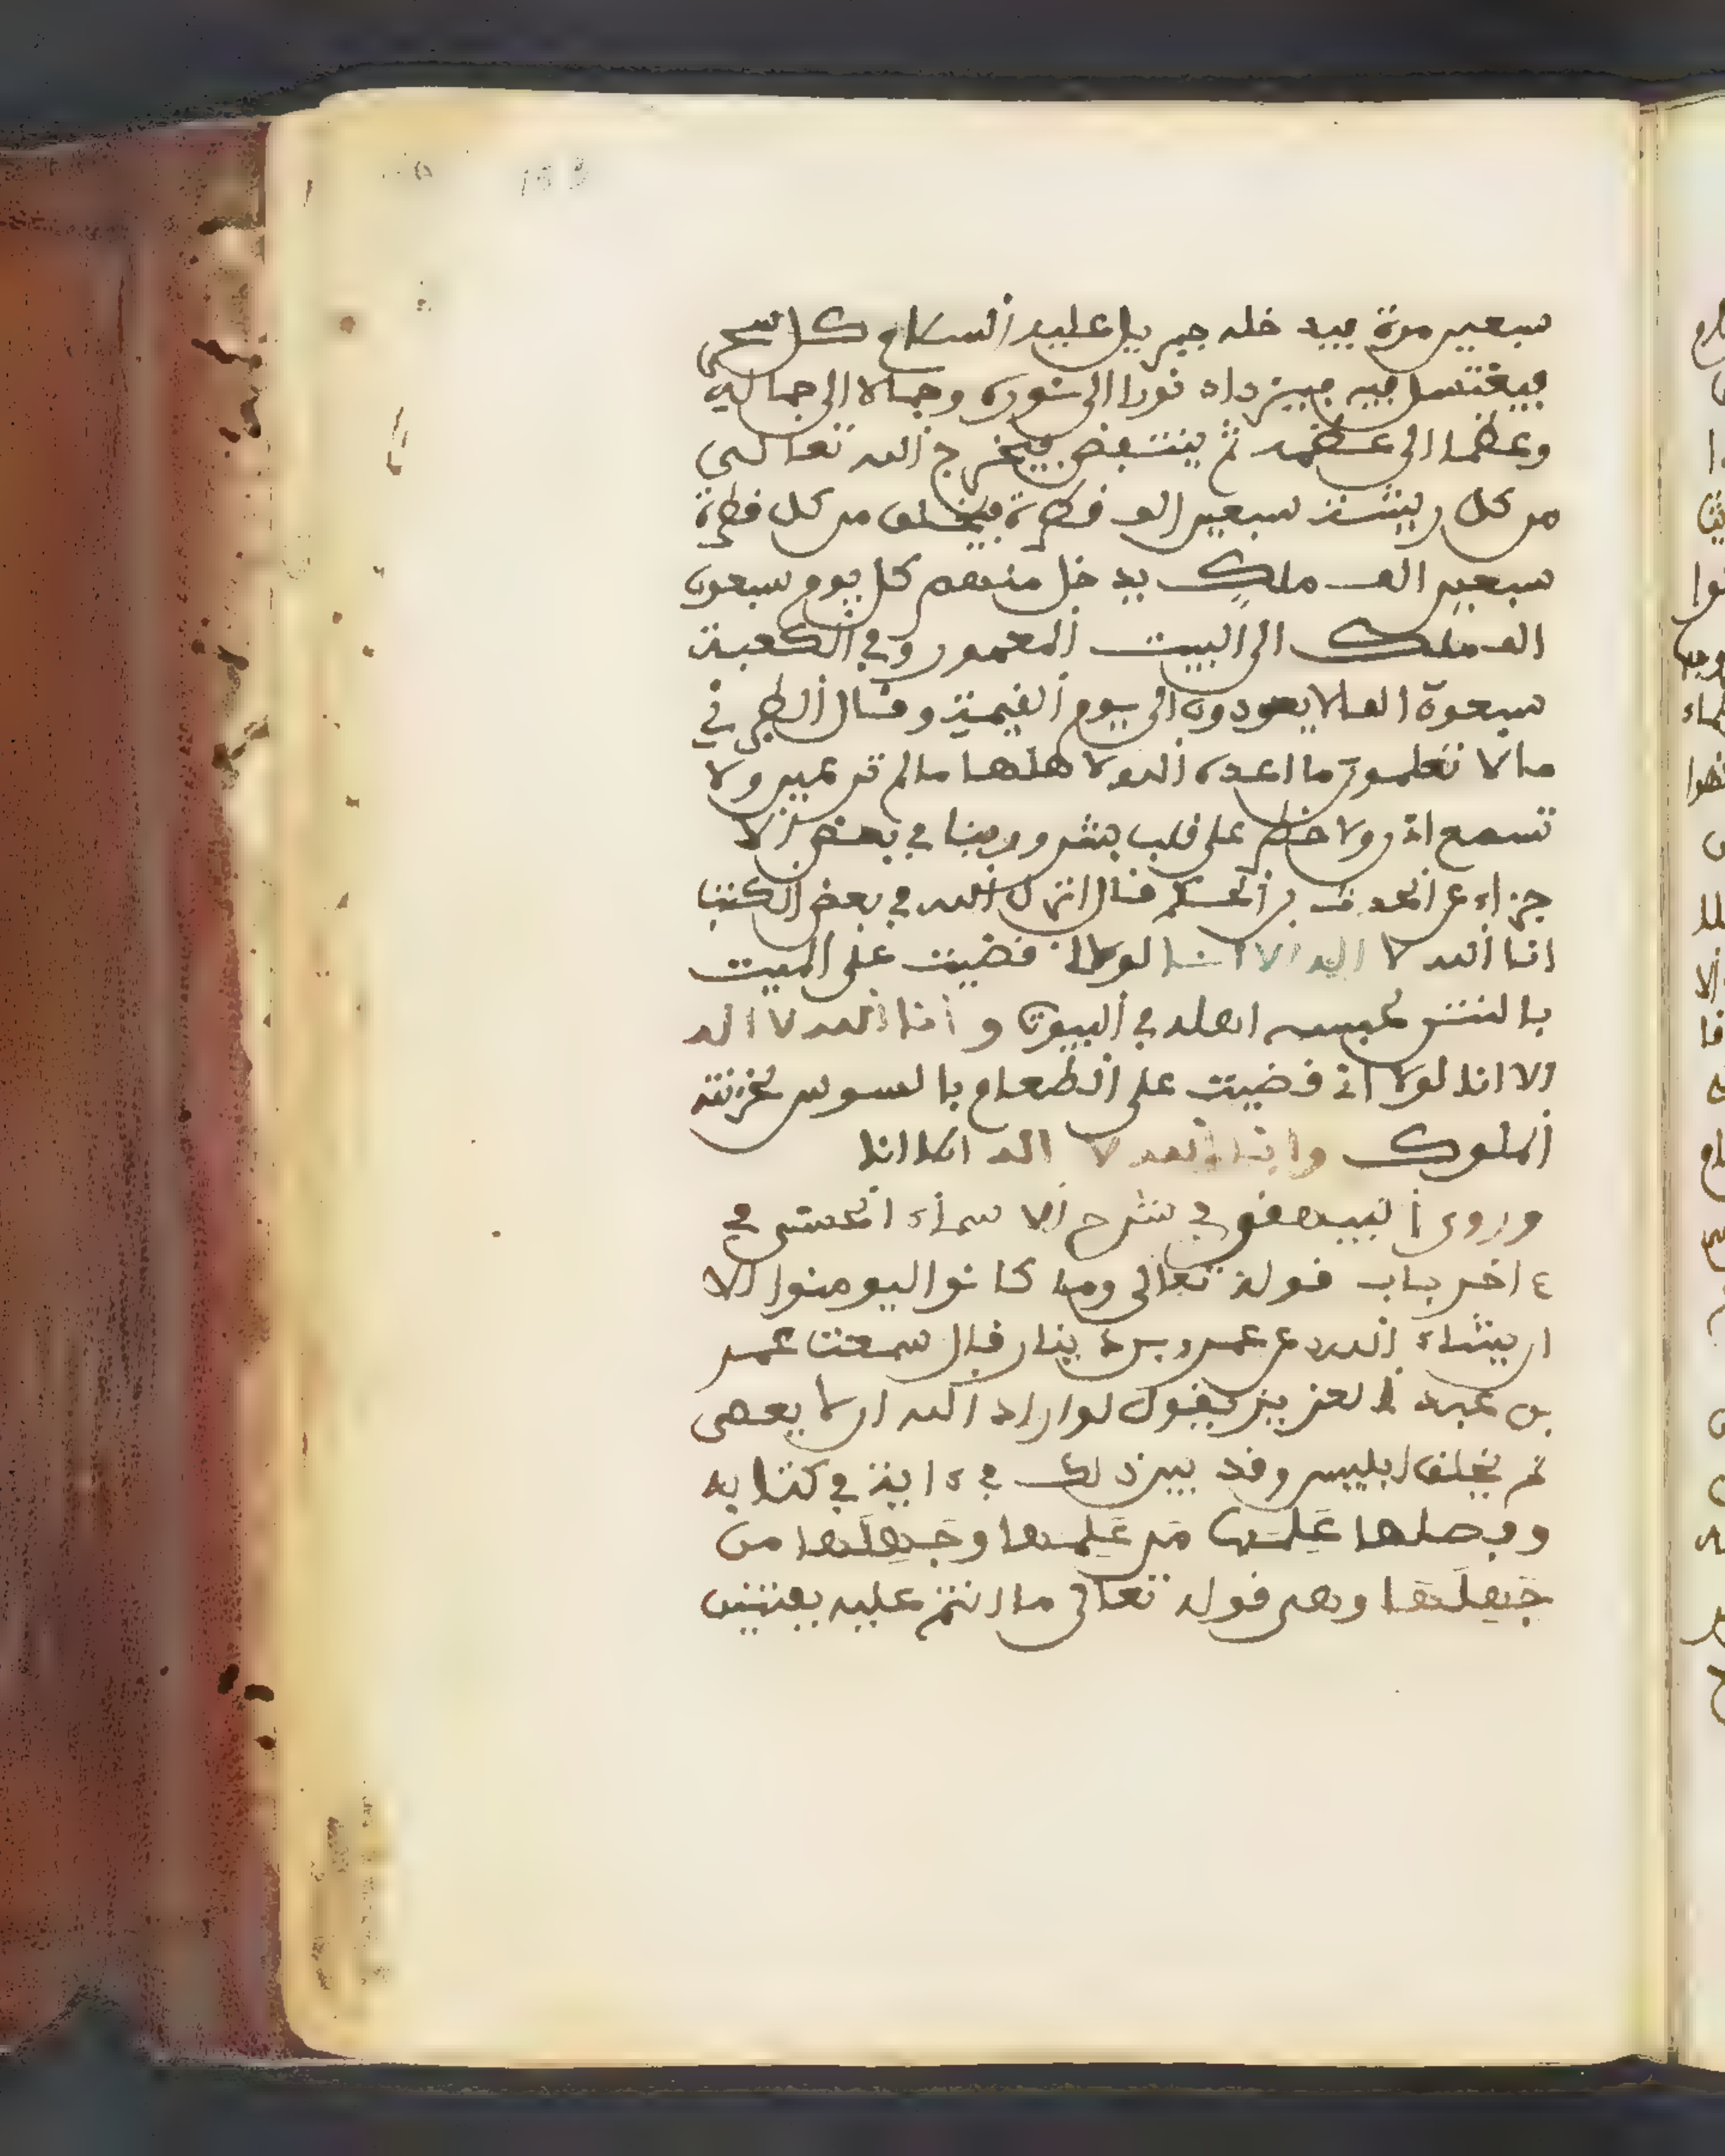 سبعين مرة يدخله جبريل عليه السلام كل سحر
فيغتسل فيه فيزداد نورا الى نوره وجمالا الى جماله
وعظما الى عظمه ثم ينتفض فيخرج الله تعالى
من كل ريشة سبعين الف قطرة فيخلق من كل قطرة
سبعين الف ملك يدخل منهم كل يوم سبعون
الف ملك الى البيت المعمور وفي الكعبة
سبعون الفا لا يعودون الى يوم القيمة وقال الطبري
ما لا تعلمون ما اعده الله لاهلها ما لم تر عين ولا
تسمع اذن ولا خطر على قلب بشر وروينا في بعض الا
جزاء عن الحدث بن الحكم قال انزل الله في بعض الكتب
انا الله لا اله الا انا لولا اني قضيت على الميت
بالنتن لحبسه اهله في البيوت وانا الله لا اله
الا انا لولا اني قضيت على الطعام بالسوس لخزنته
الملوك وانا الله لا اله الا انا
وروى البيهقي في شرح الاسماء الحسنى في
ءاخر باب قوله تعالى وما كانوا ليومنوا الا
ان يشاء الله عن عمرو بن دينار قال سمعت عمر
بن عبد العزيز يقول لو اراد الله ان لا يعصى
لم يخلق ابليس وقد بين ذلك في ءاية في كتابه
وفصلها عَلمها من عَلِمها وجَهِلَها من
جَهِلَها وهي قوله تعالى ما انتم عليه بفتنين